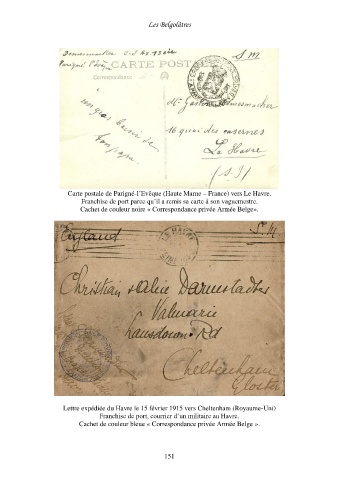 Les Belgolâtres
Parigné l'Evêque
S M
CARTE POSTALE
Correspondance
Mr Gaston Demesmacker
16 quai des casernes
Le Havre
(S.I)
Carte postale de Parigné-l'Evêque (Haute Marne – France) vers Le Havre.
Franchise de port parce qu'il a remis sa carte à son vaguemestre.
Cachet de couleur noire « Correspondance privée Armée Belge».
England
LE HAVRE
S. M
Christian & Alice Darmstadter
Valmarie
Lansdown Rd
Cheltenham
Gloster
Lettre expédiée du Havre le 15 février 1915 vers Cheltenham (Royaume-Uni)
Franchise de port, courrier d'un militaire au Havre.
Cachet de couleur bleue « Correspondance privée Armée Belge ».
151